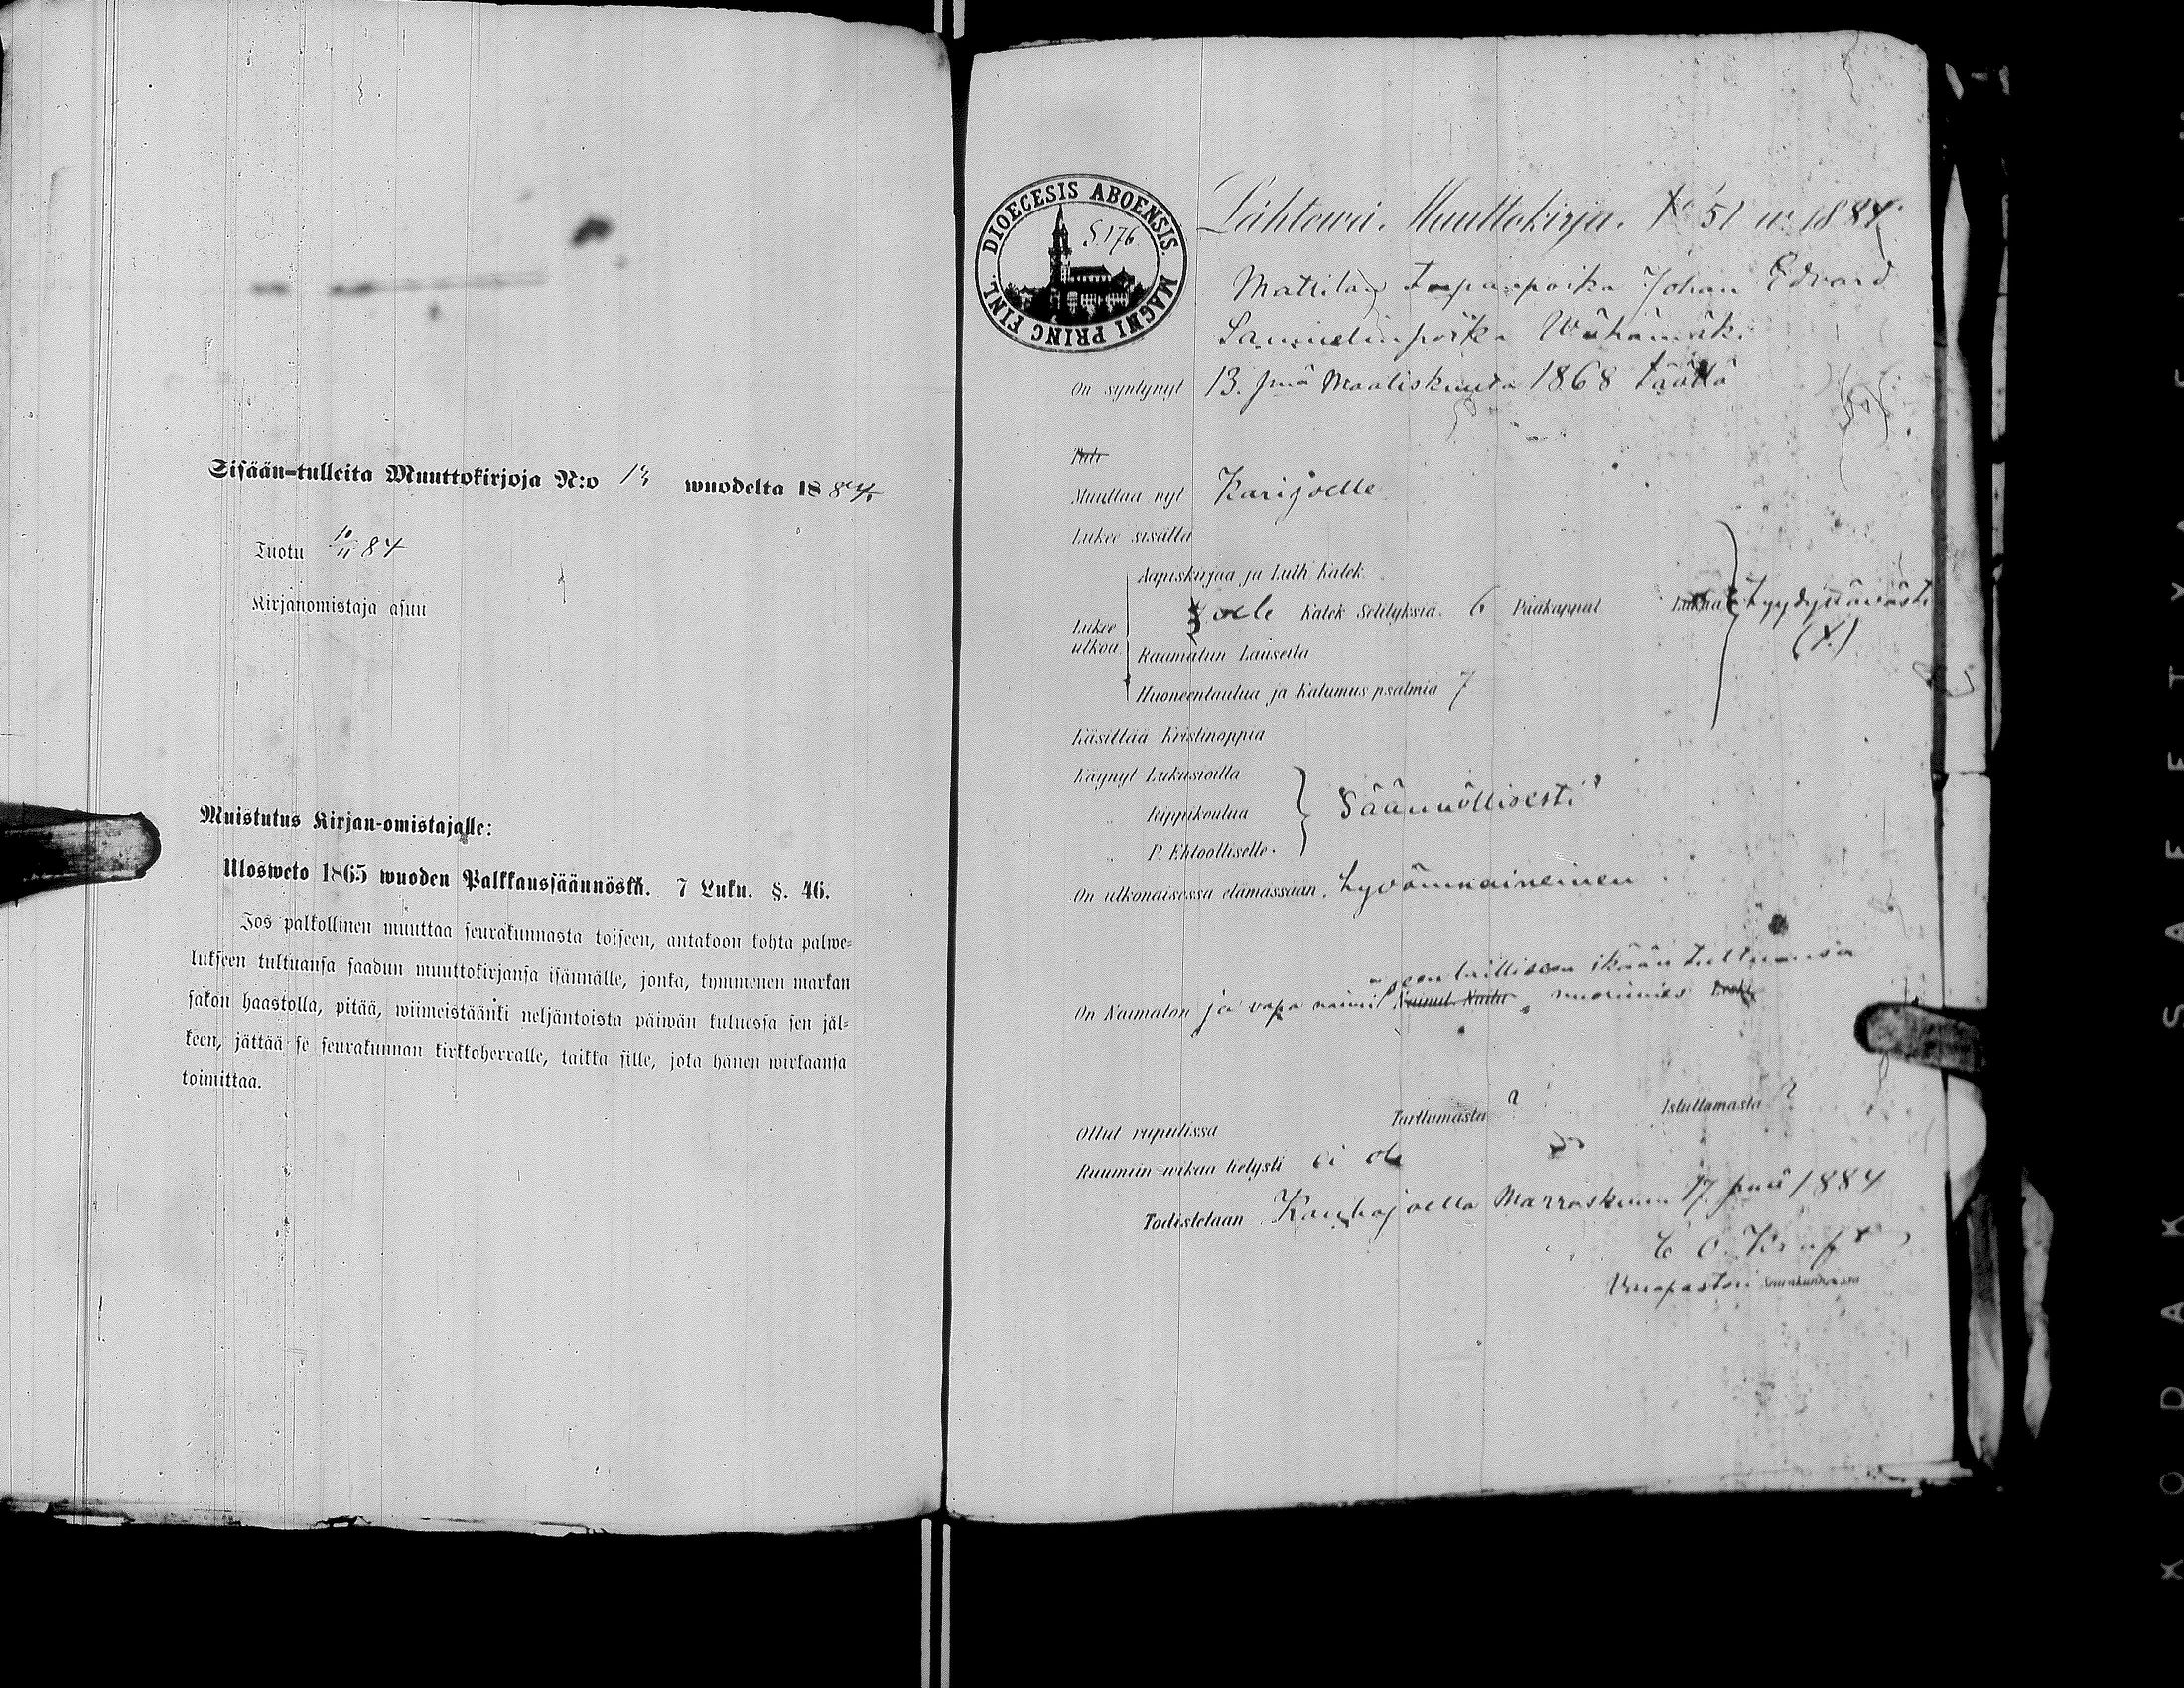 Sisään-tulleita Muuttokirjoja N:o 13 wuodelta 1884.
Tuotu 10/11 84
Kirjanomistaja asuu
Muistutus Kirjan-omistajalle:
Ulosweto 1865 wuoden Palkkaussäännöstä. 7 Luku. §. 46.
Jos palkollinen muuttaa seurakunnasta toiseen, antakoon kohta palwe-
lukseen tultuansa saadun muuttokirjansa isännälle, jonka, kymmenen markan
sakon haastolla, pitää, wiimeistäänki neljäntoista päiwän kuluessa sen jäl-
keen, jättää se seurakunnan kirkkoherralle, taikka sille, joka hänen wirkaansa
toimittaa.
DIOECESIS ABOENSIS. MAGNI PRINC FINL.
S. 176
Lähtewä. Muuttokirja. No 51 w. 1884.
Mattilan Johan Edvard
Samuelinpoika Wähämäki
On syntynyt 13. pnä Maaliskuuta 1868 täällä
Tuli
Muuttaa nyt Karijoelle
Lukee sisältä
Aapiskirjaa ja Luth Katek
Katek Selityksiä. 6 Pääkappal Lukua tyydyttäwästi
Lukee
ulkoa
Raamatun Lauseita
Huoneentaulua ja Katumus psalmia 7
Käsittää Kristinoppia
Käynyt Lukusioilla
" Rippikoulua Säännöllisesti
" P. Ehtoolliselle.
On ulkonaisessa elämässään. hyvämaineinen
seen lailliseen ikään tultuansa
On Naimaton ja vapa naimi Nainut Naitu nuorimies Leski
Ollut rupulissa Tarttumasta ? Istuttamasta ?
Ruumiin wikaa tietysti ei ole
Todistetaan Kauhajoella Marraskuun 17. pnä 1884
C O. Kraft
Varapastori Seurakunnassa
KODAK SAFETY